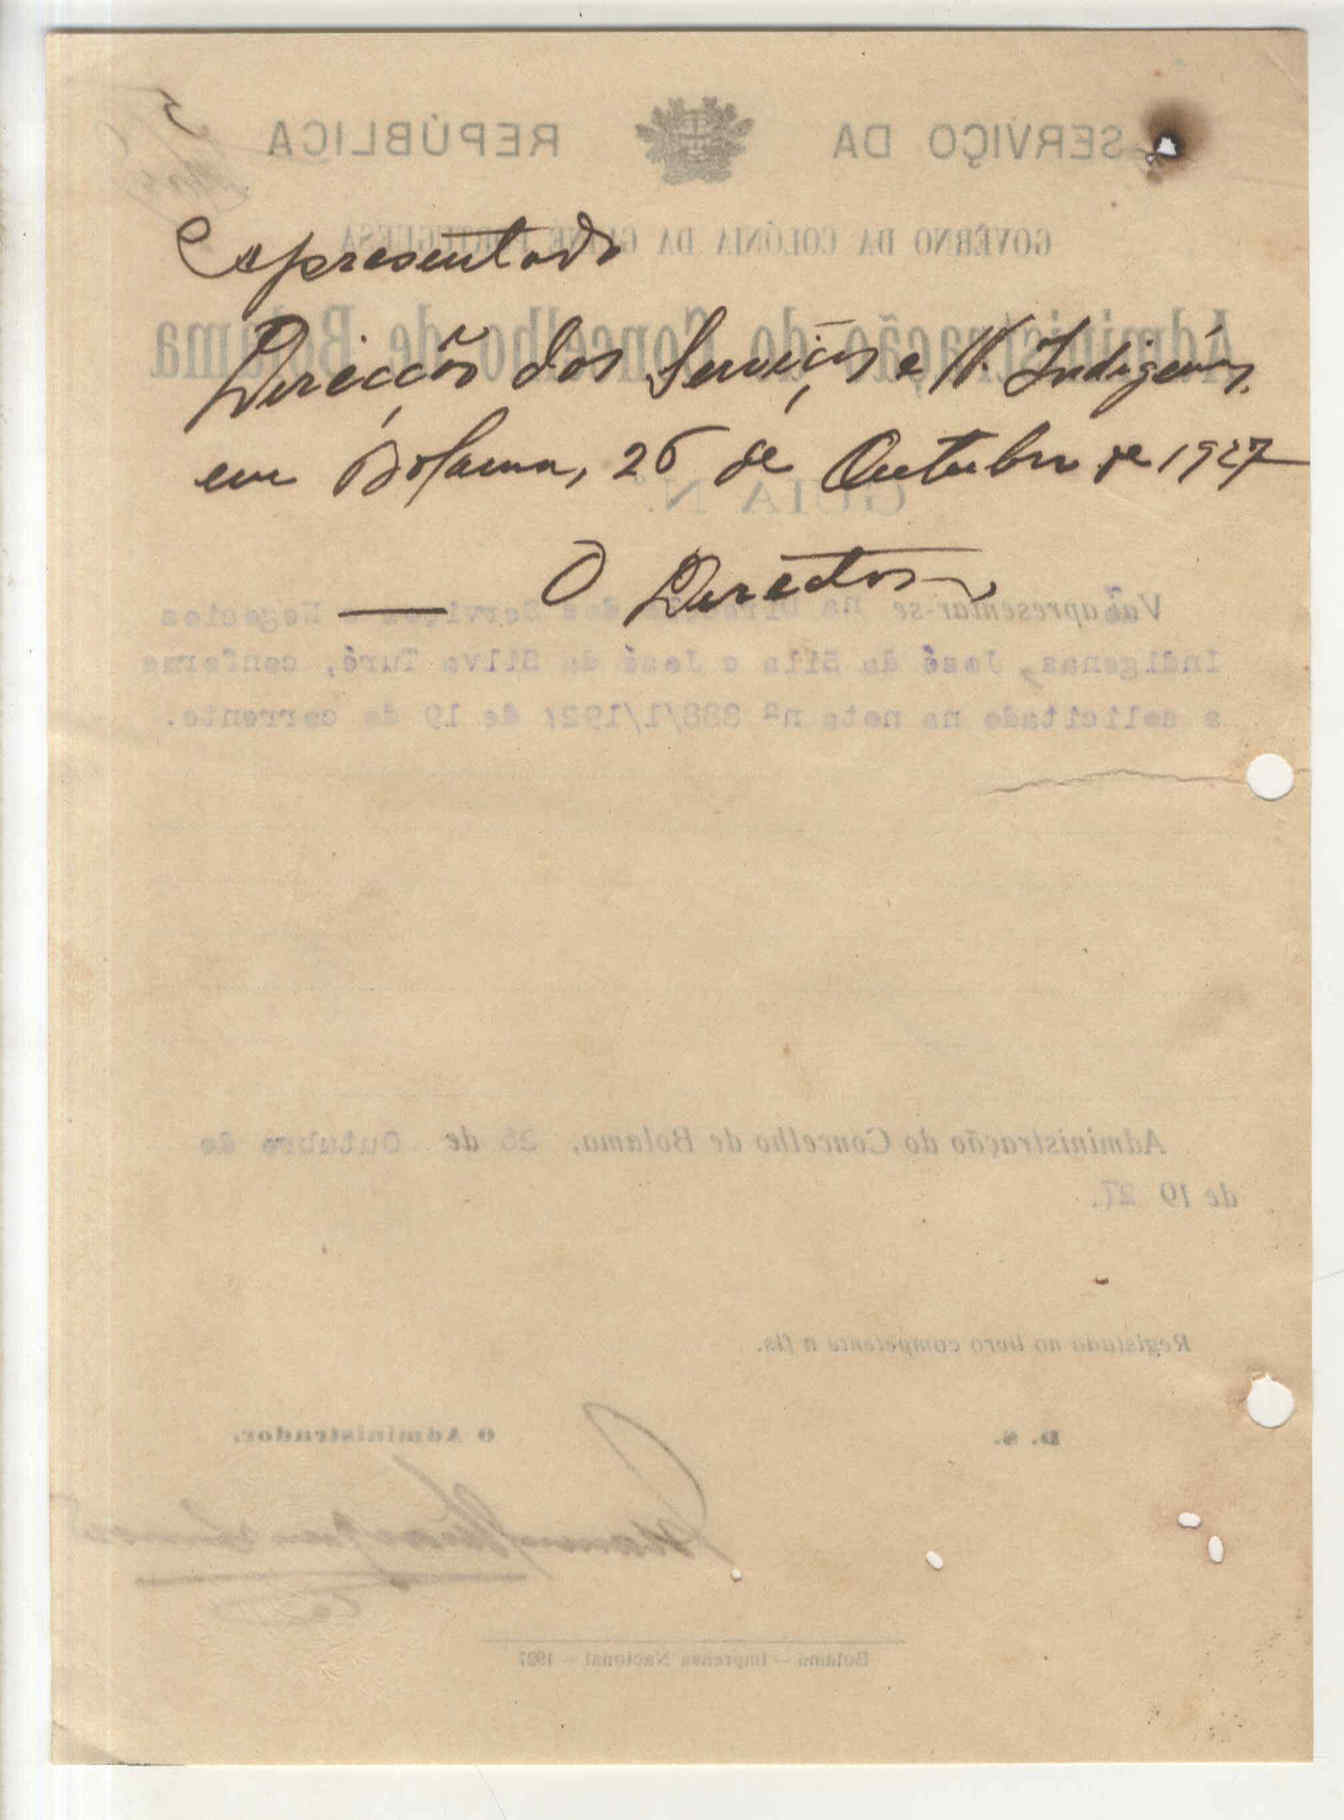 Apresentado
Direcção dos Serviços e N. Indigenas,
em Bolama, 26 de Outubro de 1927
O Director
SERVIÇO DA REPÚBLICA
GOVÊRNO DA COLÓNIA DA GUINÉ PORTUGUESA
Administração do Concelho de Bolama
GUIA N.º
apresentar-se na Direcção dos Serviços e Negocios
Indigenas, José da Silva e José da Silva Turé, conforme
o solicitado na nota nº 888/1/1927 de 19 do corrente.
Administração do Concelho de Bolama, 26 de Outubro de
de 1927.
Registado no livro competente a fls.
D. S. O Administrador.
Bolama — Imprensa Nacional — 1927